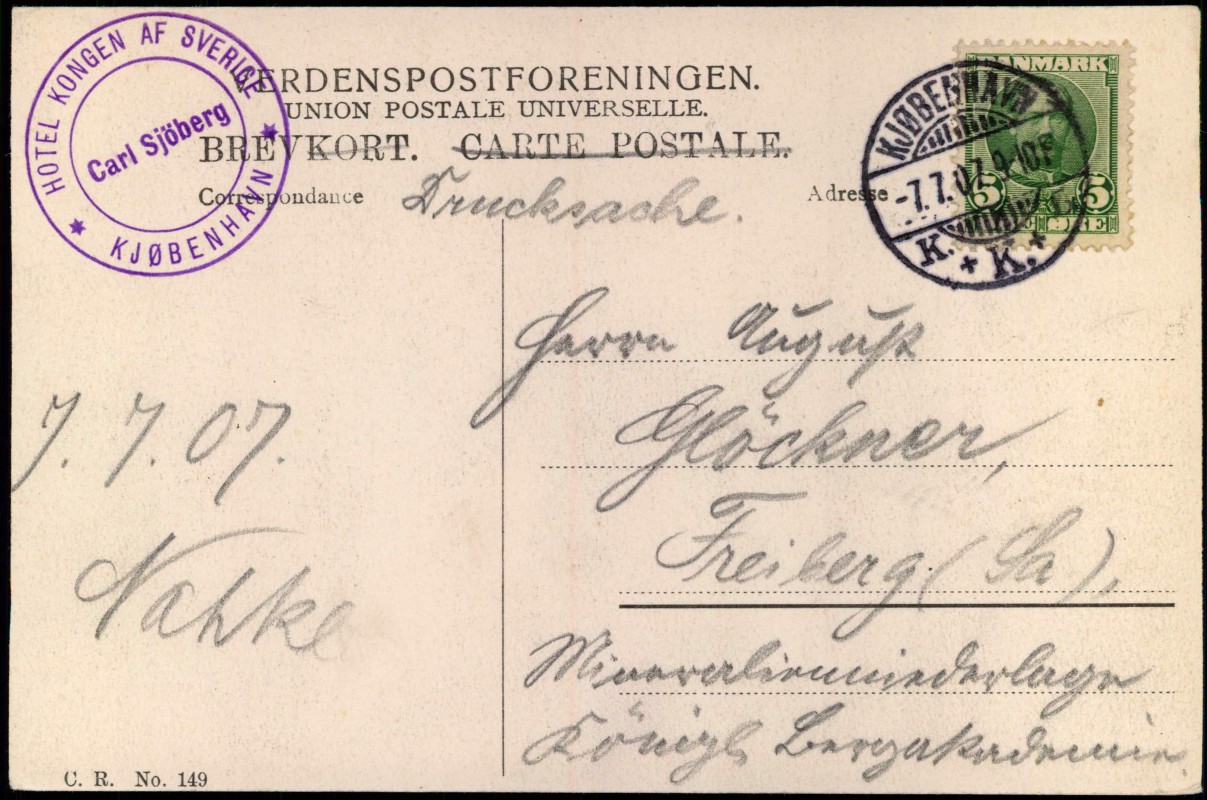 HOTEL KONGEN AF SVERIGE
Carl Sjöberg
* KJØBENHAVN *
VERDENSPOSTFORENINGEN.
UNION POSTALE UNIVERSELLE.
BREVKORT. CARTE POSTALE.
Correspondance
Drucksache.
Adresse
DANMARK
5 5
ØRE
KJØBENHAVN
-7.7.07. 9-10F
K. + K. +
Herrn August
Glöckner,
Freiberg (Sa),
Mineralienniederlage
Königl. Bergakademie
7. 7. 07.
C. R. No. 149